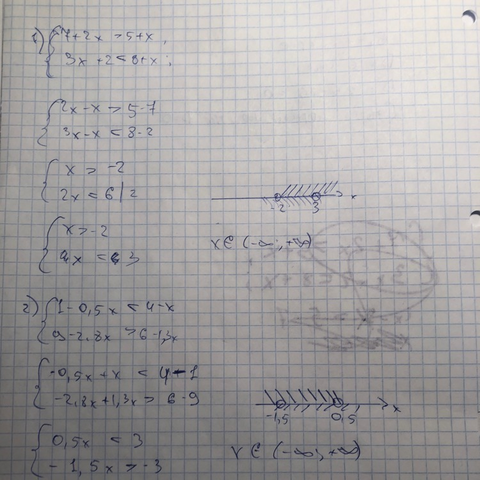 1) { 7+2x > 5+x,
3x+2 < 8+x;
{ 2x-x > 5-7
3x-x < 8-2
{ x > -2
2x < 6 | 2
-2 3 x
{ x > -2
x < 3
x ∈ (-∞; +∞)
2) { 1-0,5x < 4-x
9-2,8x > 6-1,3x
{ -0,5x+x < 4-1
-2,8x+1,3x > 6-9
-1,5 0,5 x
{ 0,5x < 3
-1,5x > -3
x ∈ (-∞; +∞)